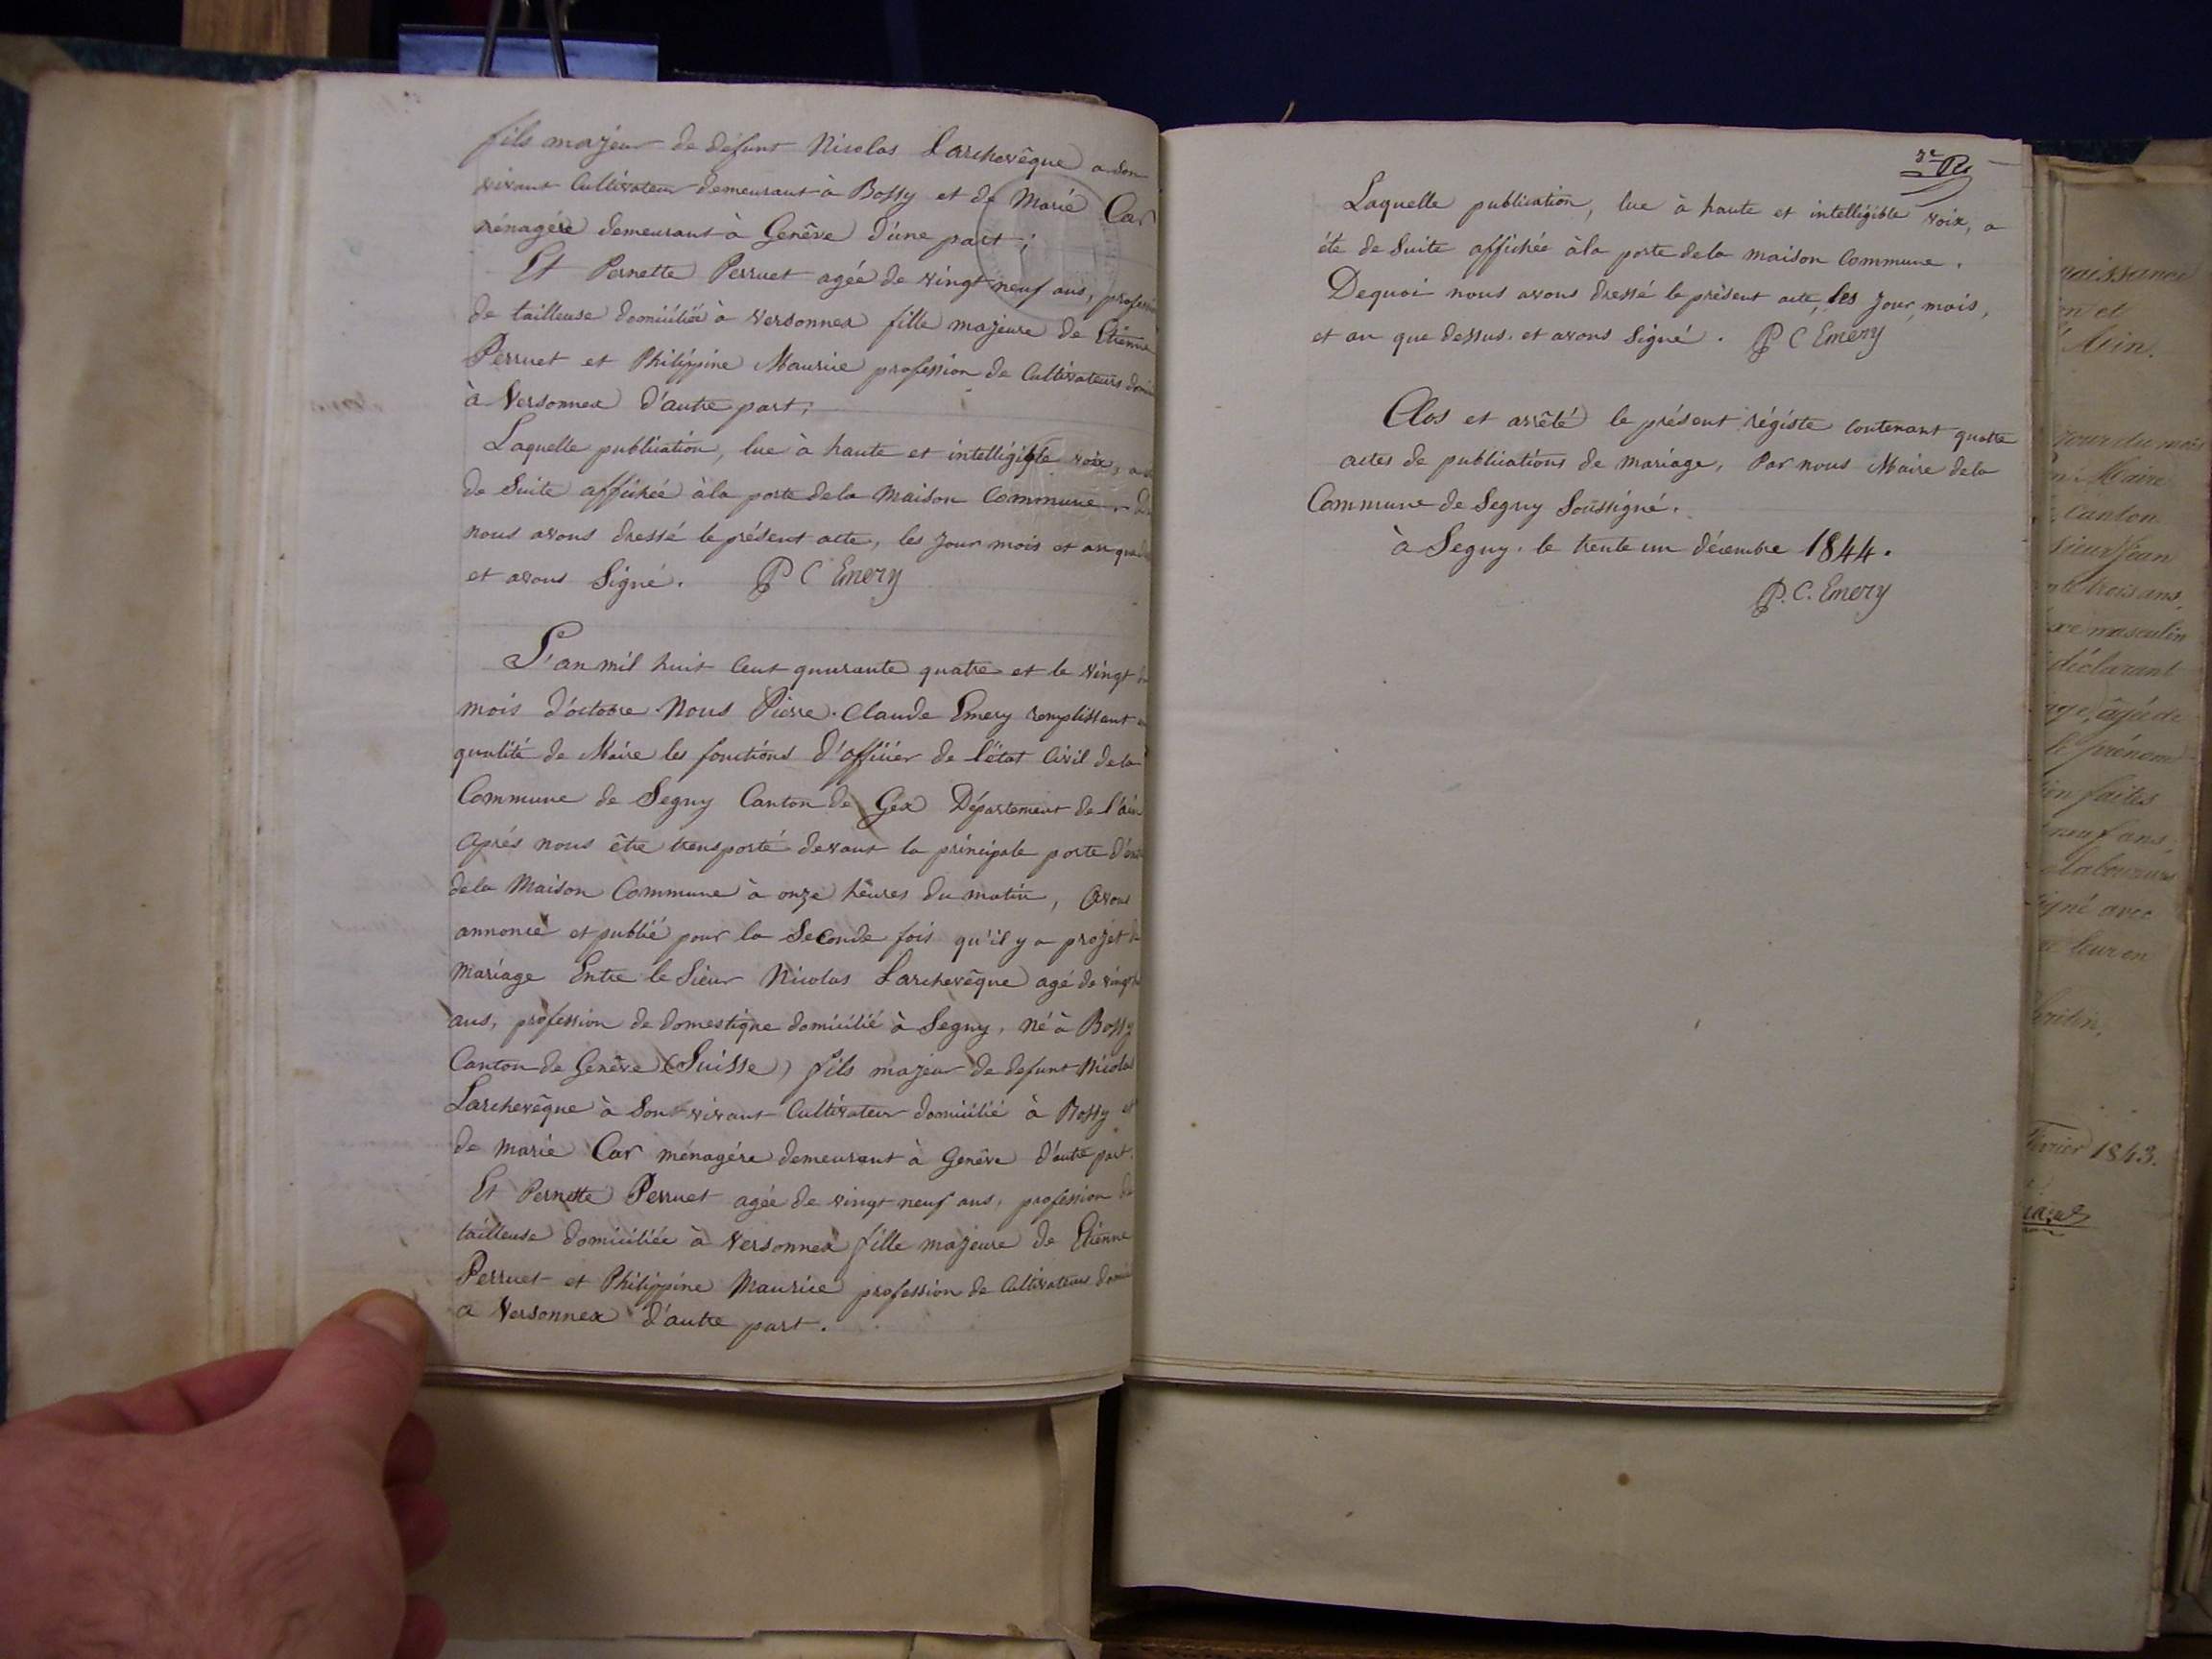 fils majeur de défunt Nicolas Larchevêque a son
vivant Cultivateur demeurant à Bossy et de Marie Car
ménagère demeurant à Genève d'une part ;
Et Pernette Perruet agée de vingt neuf ans, profession
de tailleuse domiciliée à Versonnex fille majeure de Etienne
Perruet et Philippine Maurice profession de Cultivateurs
à Versonnex d'autre part ;
Laquelle publication, lue à haute et intelligible voix, a
de Suite affichée à la porte de la Maison Commune.
nous avons dressé le présent acte, les Jour mois et an que
et avons Signé. P C Emery
L'an mil huit Cent quarante quatre et le vingt
mois d'octobre Nous Pierre Claude Emery remplissant en
qualité de Maire les fonctions d'officier de l'état Civil de la
Commune de Segny Canton de Gex Département de l'ain
Après nous être transporté devant la principale porte
de la Maison Commune à onze heures du matin, Avons
annoncé et publié pour la Seconde fois qu'il y a projet de
Mariage Entre le Sieur Nicolas Larchevêque agé de vingt
ans, profession de domestique domicilié à Segny, né à Bossy
Canton de Genève (Suisse) fils majeur de defunt Nicolas
Larchevêque à Son vivant Cultivateur domicilié à Bossy et
de marie Car ménagère demeurant à Genève d'autre part.
Et Pernette Perruet agée de vingt neuf ans, profession de
tailleuse domiciliée à Versonnex fille majeure de Etienne
Perruet et Philippine Maurice profession de Cultivateurs
a Versonnex d'autre part.
Laquelle publication, lue à haute et intelligible voix, a
été de Suite affichée à la porte de la maison Commune.
Dequoi nous avons dressé le présent acte, les Jour, mois,
et an que dessus. et avons Signé. P C Emery
Clos et arrêté le présent régiste contenant quatre
actes de publications de mariage, Par nous Maire de la
Commune de Segny Soussigné.
à Segny. le trente un décembre 1844.
P. C. Emery
naissance
en et
jour du mois
Maire
Canton
Sieur Jean
trois ans,
masculin
déclarant
âgé de
le prénom
faites
neuf ans,
Laboureur
signé avec
leur en
février 1843.